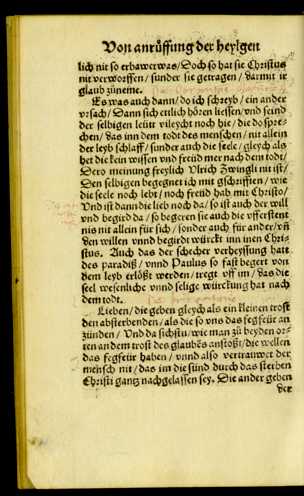 Von anrüffung der heyligen
lich nit so erhawer was/ Doch so hat sie Christus
nit verworffen/ sunder sie getragen/ darmit ir
glaub züneme.
Es was auch dann/ do ich schreyb/ ein ander
vrsach/ Dann sich etlich hören liessen/ vnd seind
der selbigen leüt vileycht noch hie/ die do spre-
chen/ das inn dem todt des menschen/ nit allein
der leyb schlaff/ sunder auch die seele/ gleych als
het die kein wissen vnd freüd mer nach dem todt/
Dero meinung freylich Vlrich Zwingli nit ist/
Den selbigen begegnet ich mit gschrifften/ wie
die seele noch lebt/ noch freüd hab mit Christo/
Vnd ist dann die lieb noch da/ so ist auch der will
vnd begird da/ so begeren sie auch die vfferstent
nis nit allein für sich/ sonder auch für ander/ vñ
den willen vnnd begird würckt inn inen Chri-
stus. Auch das der schecher verheyssung hatt
des paradiß/ vnnd Paulus so fast begert von
dem leyb erlößt werden/ tregt vff im/ das die
seel wesenliche vnnd selige würckung hat nach
dem todt.
Lieben/ die geben gleych als ein kleinen trost
den absterbenden/ als die so vns das fegfeür an
zünden/ Vnd da sichstu/ wie man zü beyden or-
ten an dem trost des glaubēs anstoßt/ die wellen
das fegfeür haben/ vnnd also vertrauwet der
mensch nit/ das im die sünd durch das sterben
Christi gantz nachgelassen sey. Die ander geben
der